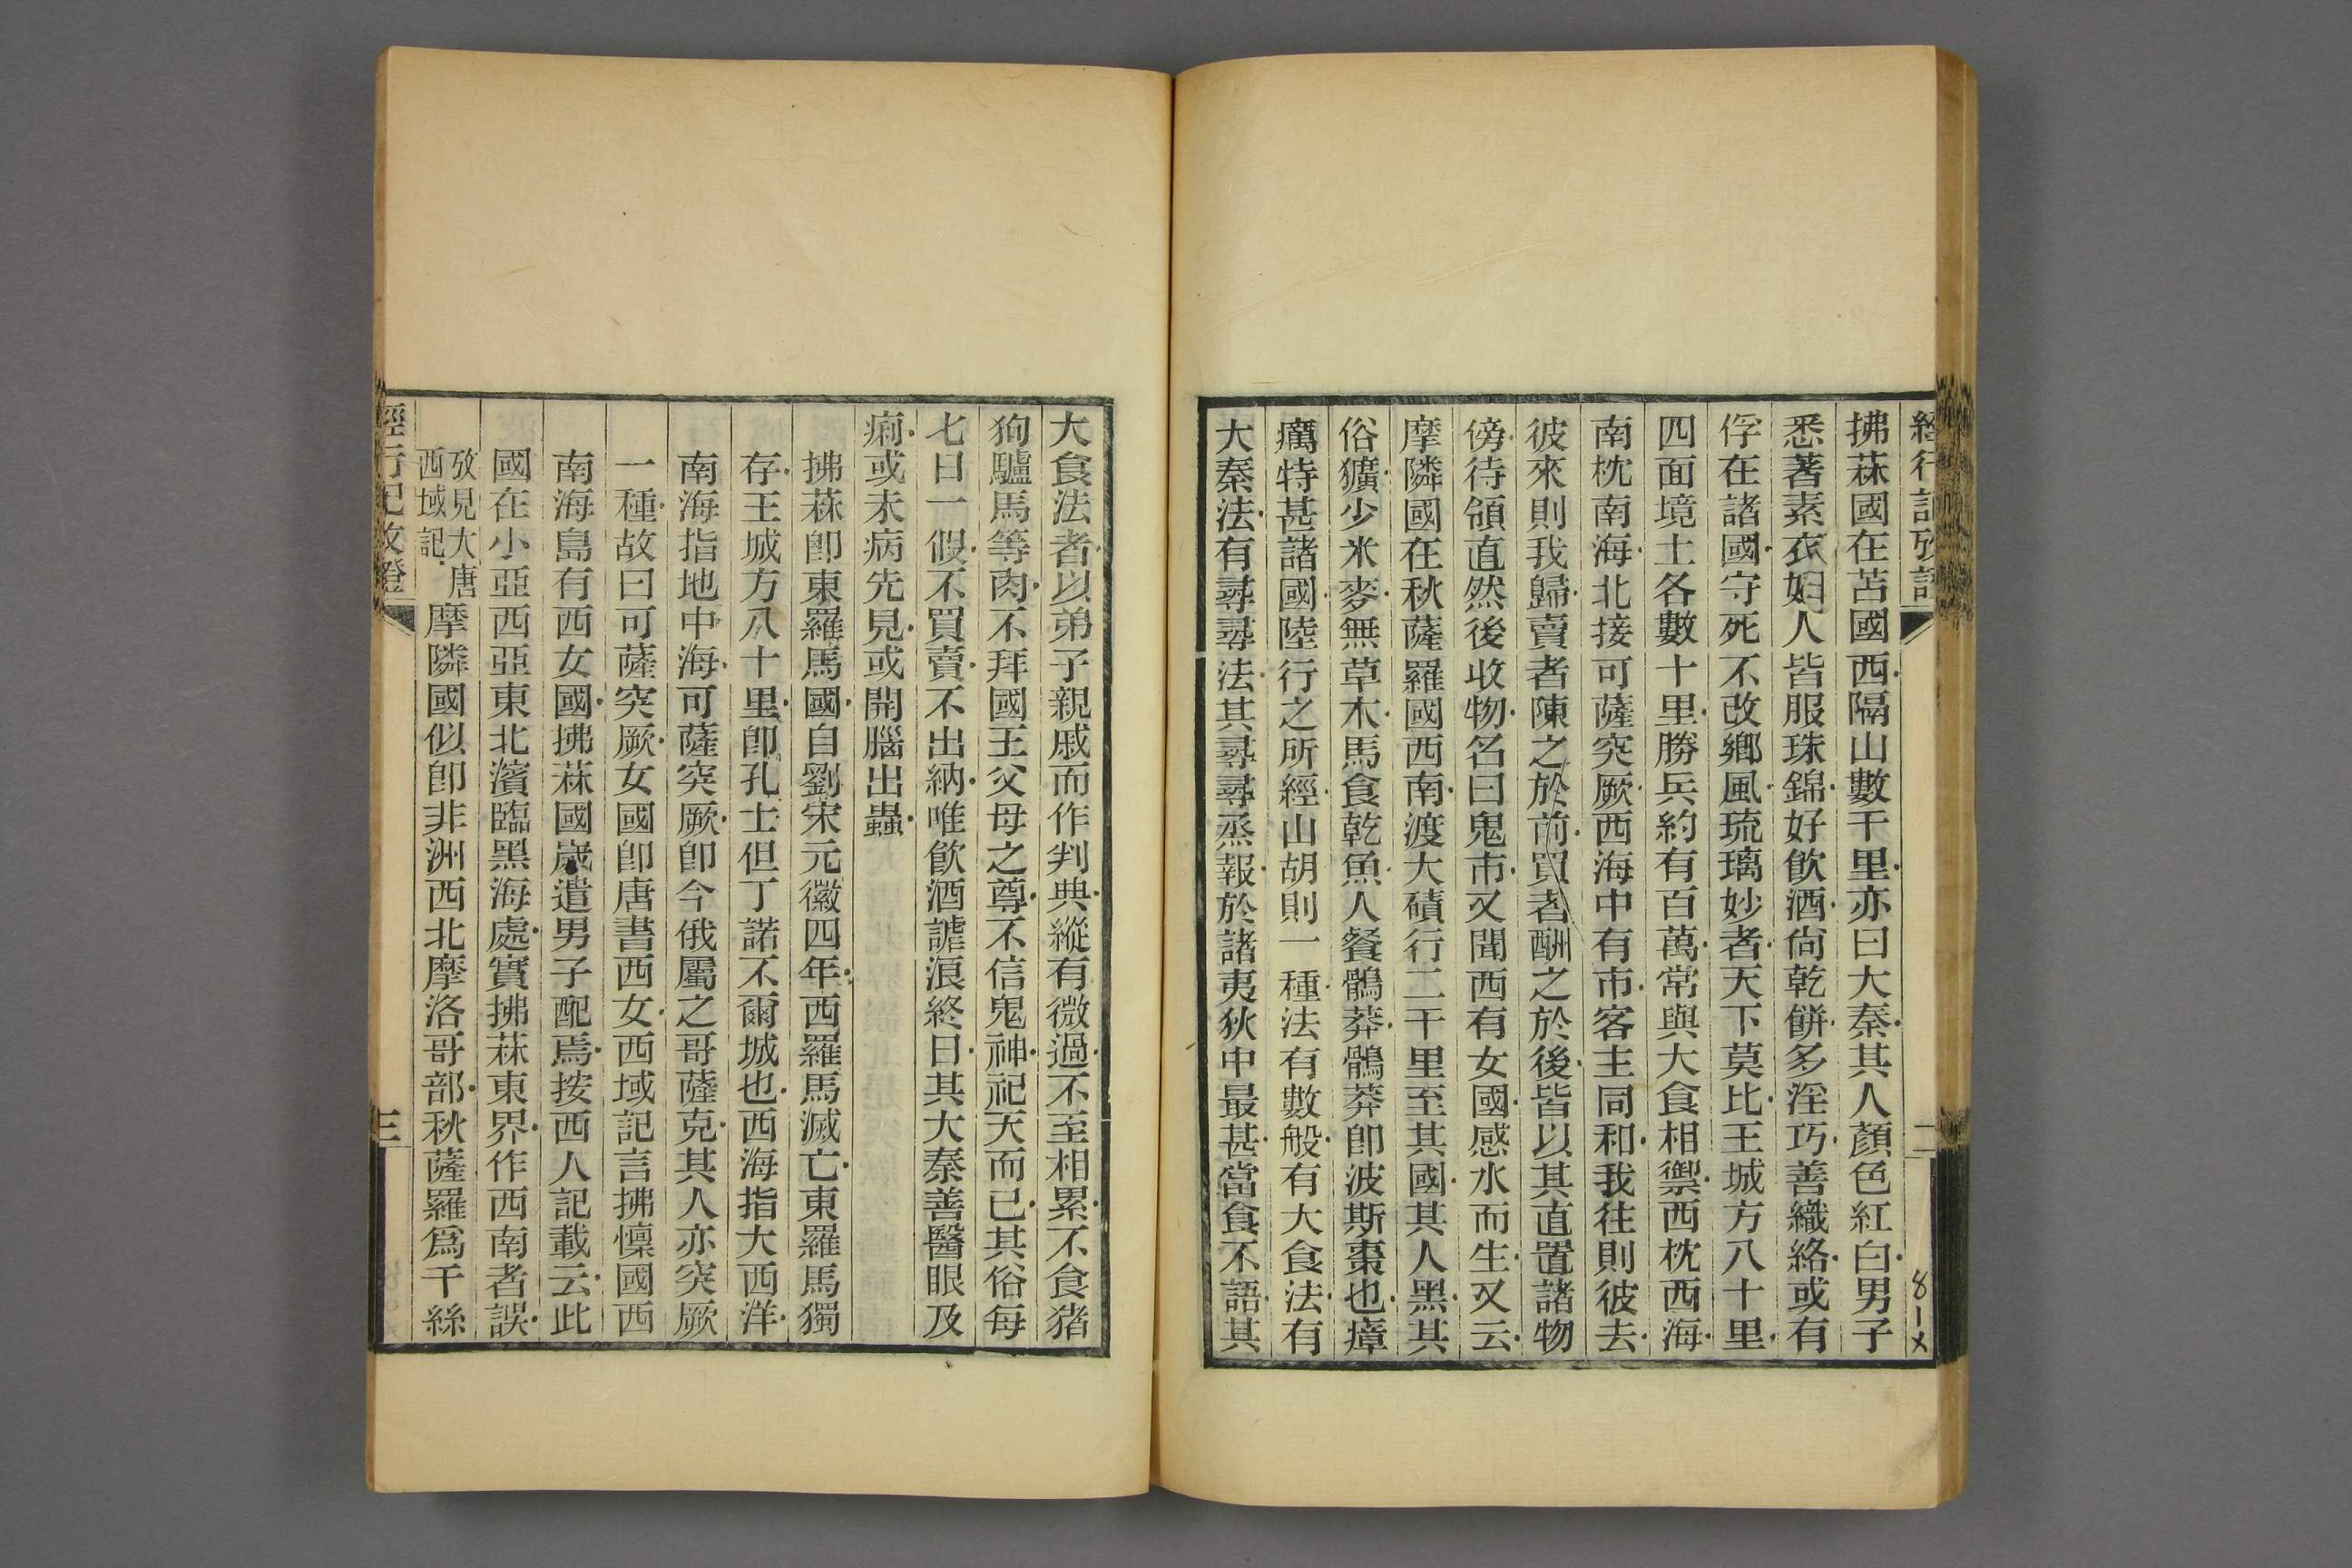 經行記攷證
二
8-1x
拂菻國在苫國西隔山數千里亦曰大秦其人顏色紅白男子
悉著素衣婦人皆服珠錦好飲酒尙乾餅多淫巧善織絡或有
俘在諸國守死不改鄉風琉璃妙者天下莫比王城方八十里
四面境土各數十里勝兵約有百萬常與大食相禦西枕西海
南枕南海北接可薩突厥西海中有市客主同和我往則彼去
彼來則我歸賣者陳之於前買者酬之於後皆以其直置諸物
傍待領直然後收物名曰鬼市又聞西有女國感水而生又云
摩隣國在秋薩羅國西南渡大磧行二千里至其國其人黑其
俗獷少米麥無草木馬食乾魚人餐鶻莽鶻莽卽波斯棗也瘴
癘特甚諸國陸行之所經山胡則一種法有數般有大食法有
大秦法有尋尋法其尋尋烝報於諸夷狄中最甚當食不語其
大食法者以弟子親戚而作判典縱有微過不至相累不食猪
狗驢馬等肉不拜國王父母之尊不信鬼神祀天而已其俗每
七日一假不買賣不出納唯飮酒謔浪終日其大秦善醫眼及
痢或未病先見或開腦出蟲
拂菻卽東羅馬國自劉宋元徽四年西羅馬滅亡東羅馬獨
存王城方八十里卽孔士但丁諾不爾城也西海指大西洋
南海指地中海可薩突厥卽今俄屬之哥薩克其人亦突厥
一種故曰可薩突厥女國卽唐書西女西域記言拂懍國西
南海島有西女國拂菻國歲遣男子配焉按西人記載云此
國在小亞西亞東北濱臨黑海處實拂菻東界作西南者誤
攷見大唐
西域記
摩隣國似卽非洲西北摩洛哥部秋薩羅爲千絲
經行記攷證
三